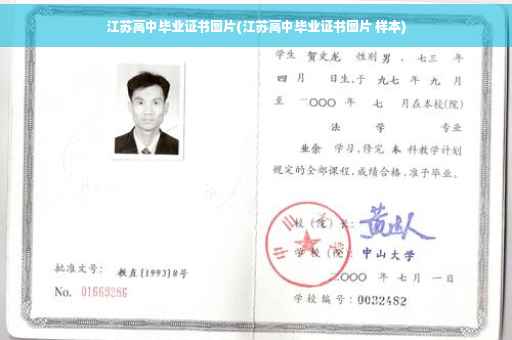 江苏高中毕业证书图片(江苏高中毕业证书图片 样本)
学生 贺文龙 性别 男，七三 年
四 月 日生，于 九七 年 九 月
至 二〇〇〇 年 七 月在本校(院)
法 学 专业
业余 学习，修完 本 科教学计划
规定的全部课程，成绩合格，准予毕业。
校（院）长：
学 校（院） 中山大学
批准文号： 教直[1993]8号
二〇〇〇 年 七月 一日
No. 01669286
学校编号：0032482